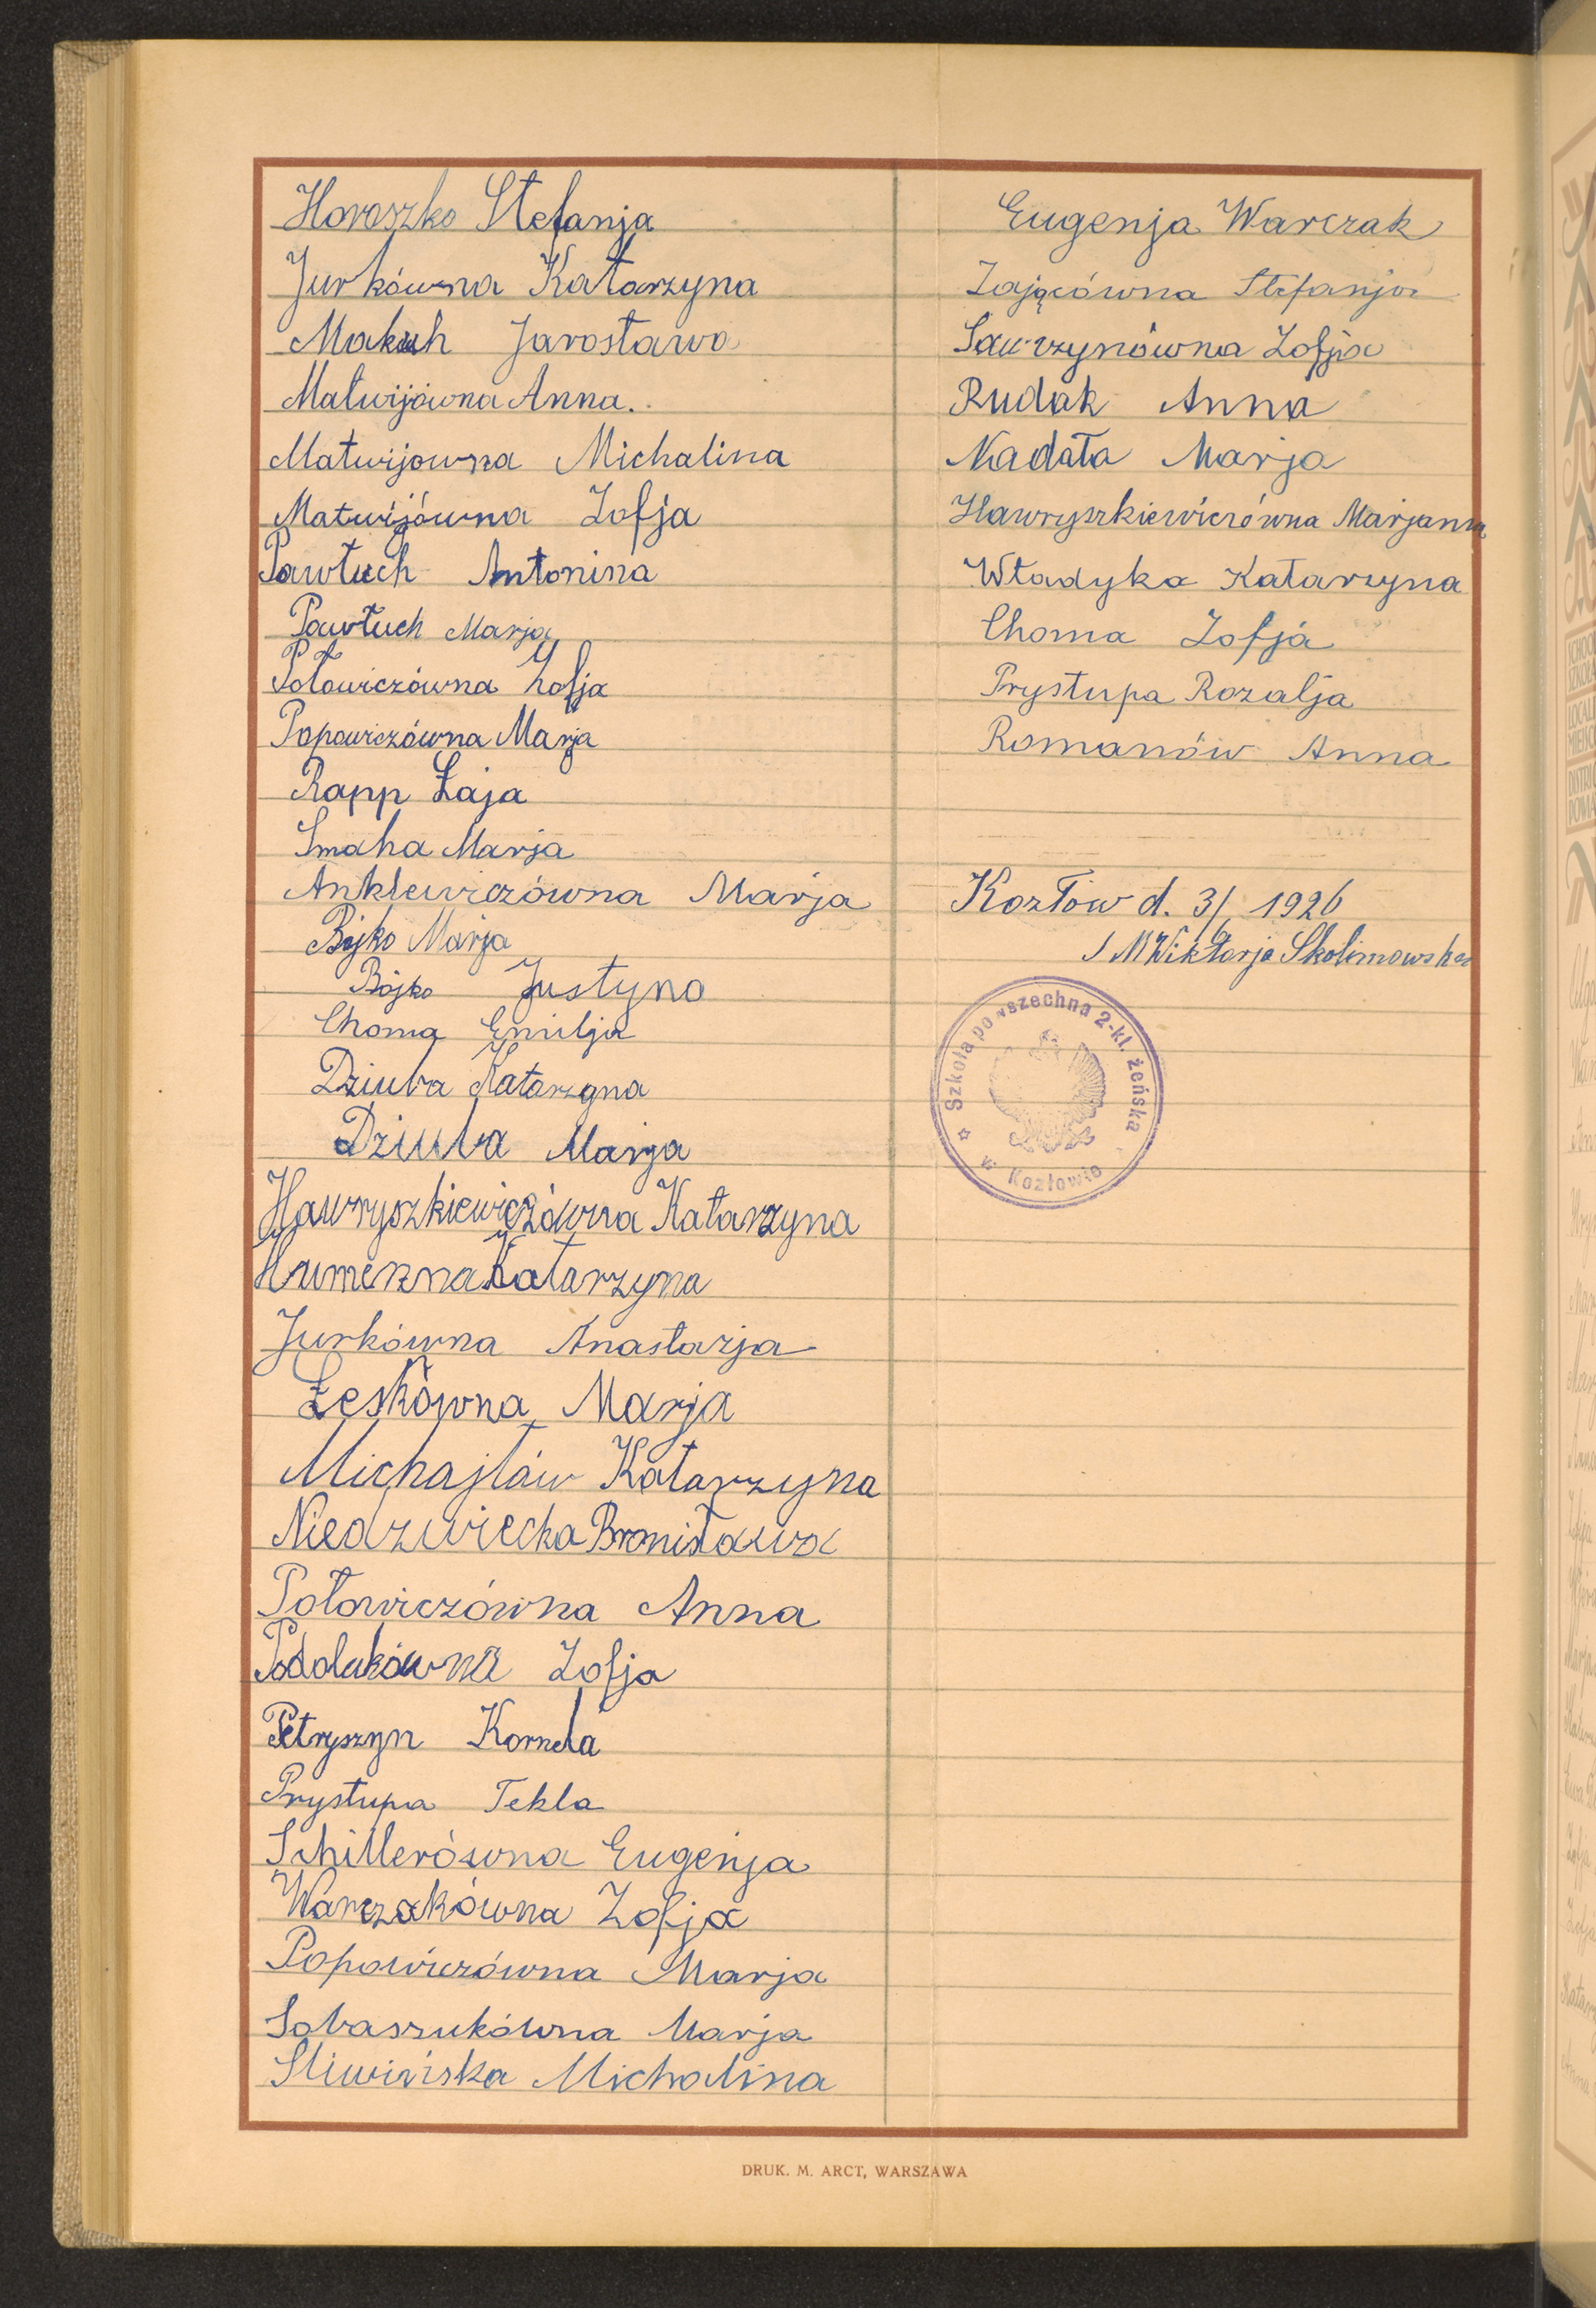 Horoszko Stefanja
Jurkówna Katarzyna
Makuh Jarosława
Matwijówna Anna.
Matwijowna Michalina
Matwijówna Zofja
Pawłuch Antonina
Pawłuch Marja
Połowiczówna Zofja
Popowiczówna Marja
Rapp Łaja
Smaha Marja
Anklewiczówna Marja
Bojko Marja
Bojko Justyna
Choma Emilja
Dziuba Katarzyna
Dziuba Marja
Hawryszkiewiczówna Katarzyna
Humenna Katarzyna
Jurkówna Anastazja
Łeskówna Marja
Michajłów Katarzyna
Niedzwiecka Bronisława
Połowiczówna Anna
Podolukówna Zofja
Petryszyn Kornela
Prystupa Tekla
Schillerówna Eugenja
Warczakówna Zofja
Popowiczówna Marja
Sobaszukówna Marja
Sliwińska Michalina
Eugenja Warczak
Zającówna Stefanja
Sawrzynówna Zofja
Rudak Anna
Nadała Marja
Hawryszkiewiczówna Marjanna
Władyka Katarzyna
Choma Zofja
Prystupa Rozalja
Romanów Anna
Kozłów d. 3/ 1926
S M Wiktorja Skolimowska
Szkoła powszechna 2-kl. żeńska
w Kozłowie
DRUK. M. ARCT, WARSZAWA